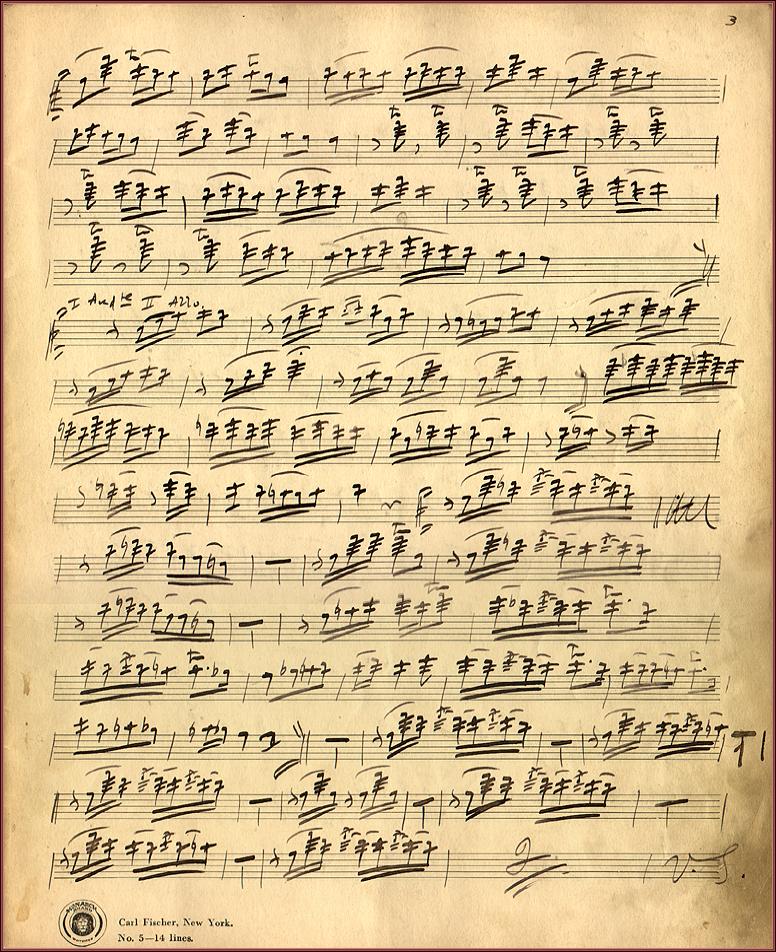 3
I And.te II Allo.
V.S.
MONARCH BRAND
WARRANTED
Carl Fischer, New York.
No. 5—14 lines.